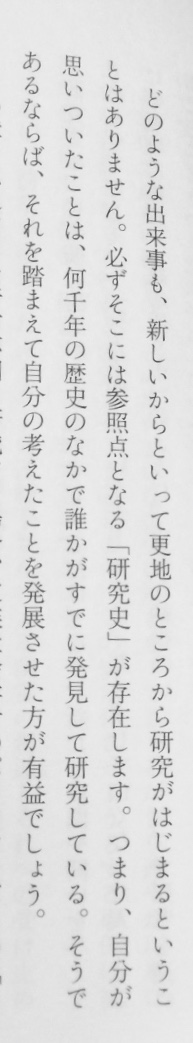 どのような出来事も、新しいからといって更地のところから研究がはじまるというこ
とはありません。必ずそこには参照点となる「研究史」が存在します。つまり、自分が
思いついたことは、何千年の歴史のなかで誰かがすでに発見して研究している。そうで
あるならば、それを踏まえて自分の考えたことを発展させた方が有益でしょう。